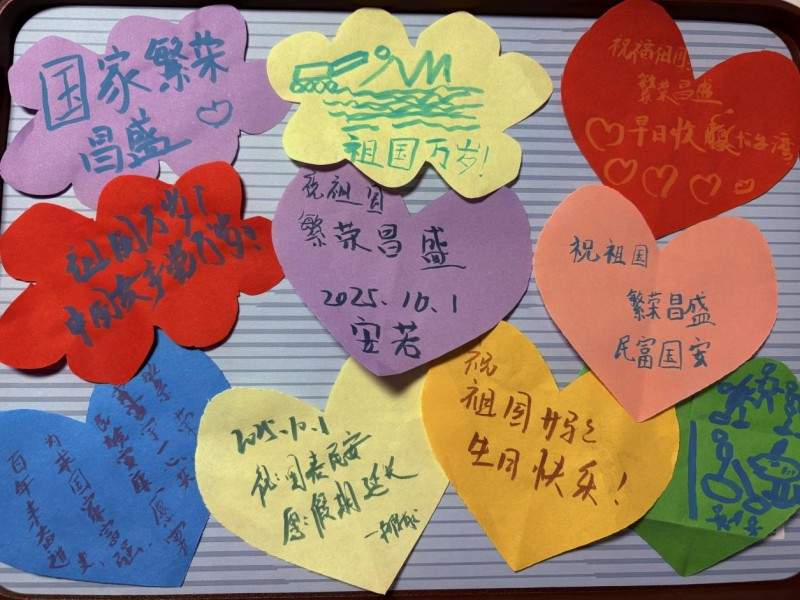 国家繁荣
昌盛
祖国万岁！
祝福祖国
繁荣昌盛
早日收 台湾
祖国万岁！
中国共产党万岁！
祝祖国
繁荣昌盛
2025.10.1
安若
祝祖国
繁荣昌盛
民富国安
为我国家富
百年未
2025.10.1
祝：国泰民安
愿：假期延长
祝
祖国妈妈
生日快乐！